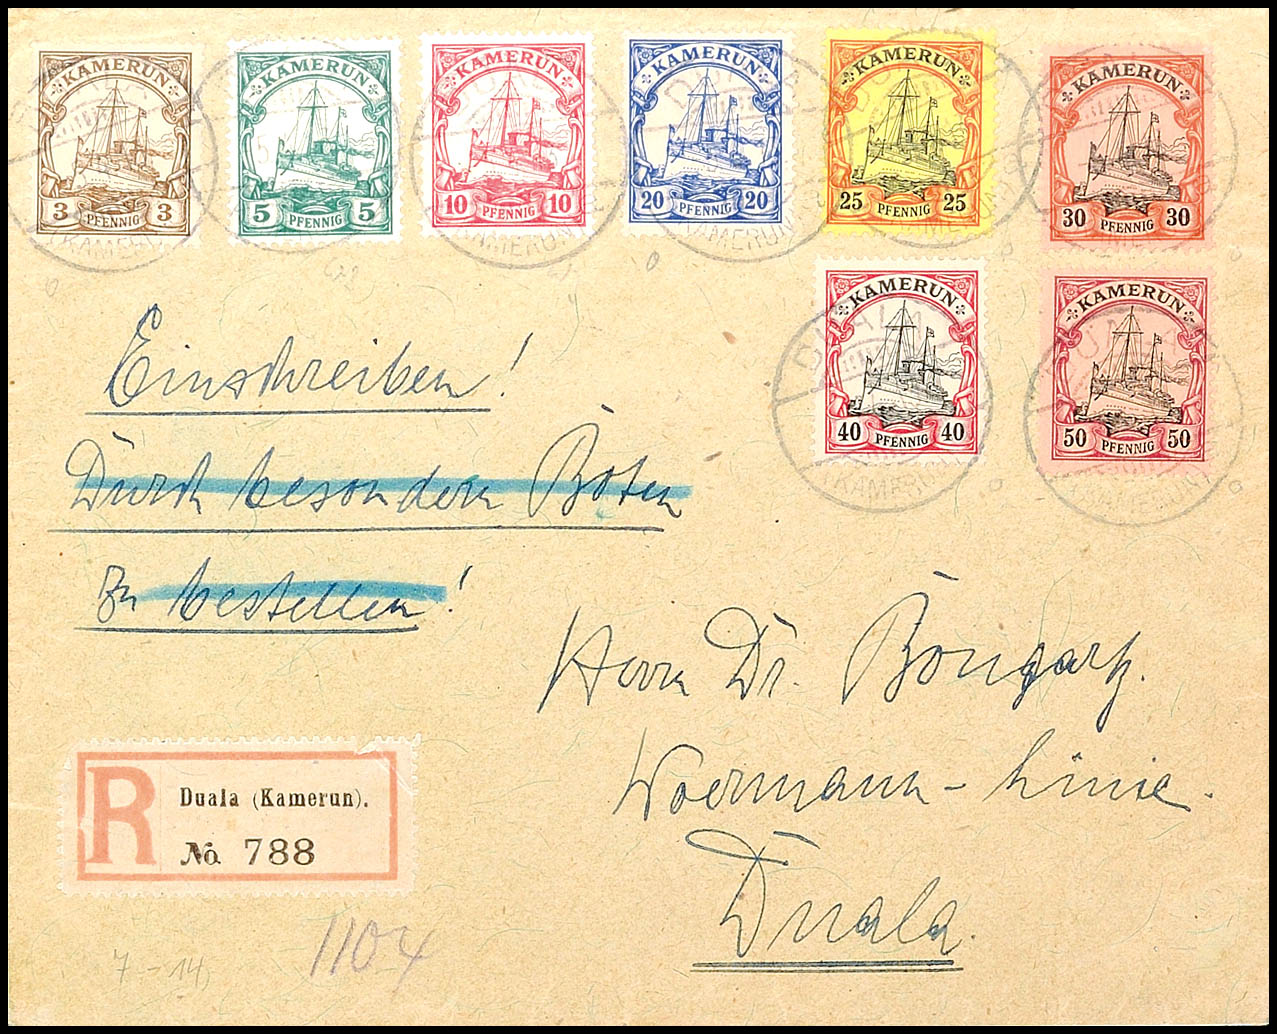 KAMERUN
3 PFENNIG 3
KAMERUN
5 PFENNIG 5
KAMERUN
10 PFENNIG 10
KAMERUN
20 PFENNIG 20
KAMERUN
25 PFENNIG 25
KAMERUN
30 PFENNIG 30
KAMERUN
40 PFENNIG 40
KAMERUN
50 PFENNIG 50
DUALA
(KAMERUN)
Einschreiben!
Durch besondern Boten
zu bestellen!
Herrn Dr. Bongartz.
Woermann-Linie.
Duala.
R Duala (Kamerun).
No. 788
1104
7-14